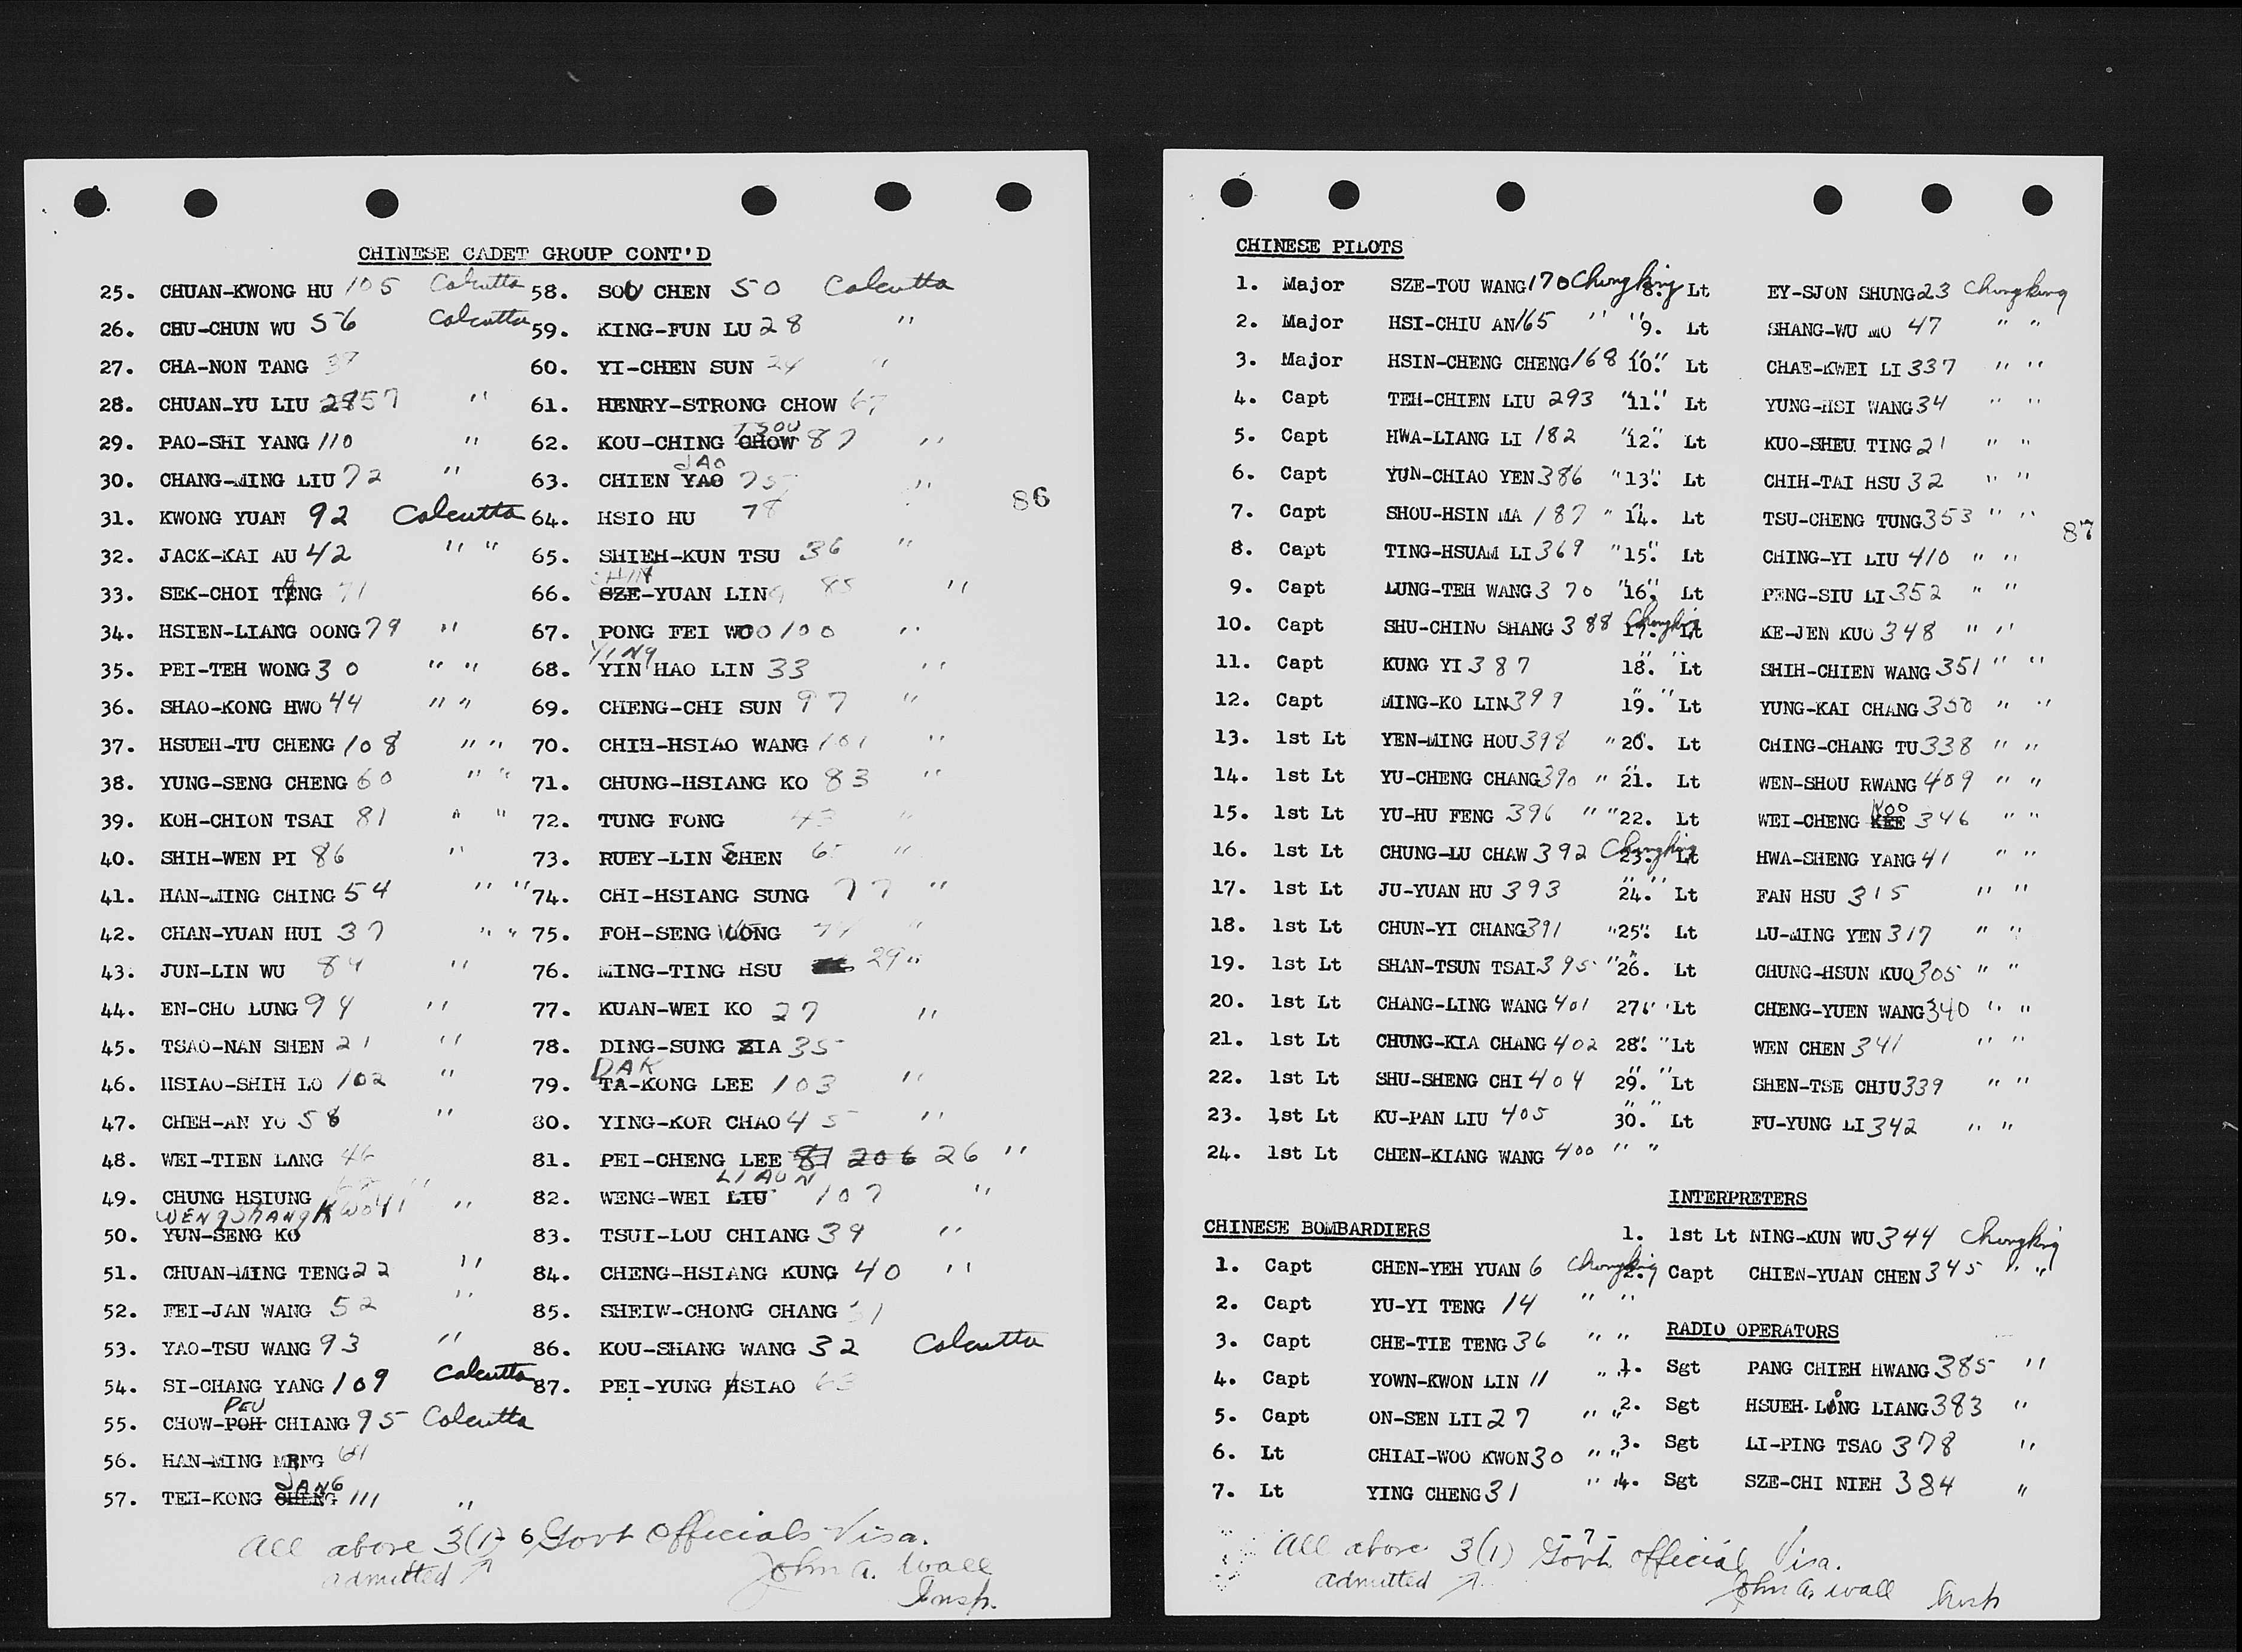 CHINESE CADET GROUP CONT'D
25. CHUAN-KWONG HU 105 Calcutta
26. CHU-CHUN WU 56 Calcutta
27. CHA-NON TANG
28. CHUAN-YU LIU 2857 "
29. PAO-SHI YANG 110 "
30. CHANG-MING LIU 72 "
31. KWONG YUAN 92 Calcutta
32. JACK-KAI AU 42 " "
33. SEK-CHOI TANG 71
34. HSIEN-LIANG OONG 79 "
35. PEI-TEH WONG 30 " "
36. SHAO-KONG HWO 44 " "
37. HSUEH-TU CHENG 108 " "
38. YUNG-SENG CHENG 60 " "
39. KOH-CHION TSAI 81 " "
40. SHIH-WEN PI 86 "
41. HAN-MING CHING 54 " "
42. CHAN-YUAN HUI 37 " "
43. JUN-LIN WU 84 "
44. EN-CHO LUNG 94 "
45. TSAO-NAN SHEN 21 "
46. HSIAO-SHIH LO 102 "
47. CHEH-AN YU 58 "
48. WEI-TIEN LANG 46
49. CHUNG HSIUNG "
WENG SHANG KWO 41
50. YUN-SENG KO
51. CHUAN-MING TENG 22 "
52. FEI-JAN WANG 52 "
53. YAO-TSU WANG 93 "
54. SI-CHANG YANG 109 Calcutta
PEU
55. CHOW-POH CHIANG 95 Calcutta
56. HAN-MING MENG
JANG
57. TEH-KONG CHENG 111 "
58. SOU CHEN 50 Calcutta
59. KING-FUN LU 28 "
60. YI-CHEN SUN 24 "
61. HENRY-STRONG CHOW 67
TSOU
62. KOU-CHING CHOW 87 "
JAO
63. CHIEN YAO 75 "
64. HSIO HU 78
65. SHIEH-KUN TSU 36 "
SHIN
66. SZE-YUAN LING 85 "
67. PONG FEI WOO 100 "
YING
68. YIN HAO LIN 33 "
69. CHENG-CHI SUN 97 "
70. CHIH-HSIAO WANG 101 "
71. CHUNG-HSIANG KO 83 "
72. TUNG FONG 43 "
73. RUEY-LIN SHEN "
74. CHI-HSIANG SUNG 77 "
75. FOH-SENG "
76. MING-TING HSU 29 "
77. KUAN-WEI KO 27 "
78. DING-SUNG ZIA 35
DAK
79. TA-KONG LEE 103 "
80. YING-KOR CHAO 45 "
81. PEI-CHENG LEE 87 206 26 "
LIAUN
82. WENG-WEI LIU 107 "
83. TSUI-LOU CHIANG 39 "
84. CHENG-HSIANG KUNG 40 "
85. SHEIW-CHONG CHANG 31
86. KOU-SHANG WANG 32 Calcutta
87. PEI-YUNG HSIAO 63
86
- 6
All above 3(1) Govt Officials Visa.
admitted
John A. Wall
Insp.
CHINESE PILOTS
1. Major SZE-TOU WANG 170 Chungking
2. Major HSI-CHIU AN 165 " "
3. Major HSIN-CHENG CHENG 168 " "
4. Capt TEH-CHIEN LIU 293 " "
5. Capt HWA-LIANG LI 182 " "
6. Capt YUN-CHIAO YEN 386 " "
7. Capt SHOU-HSIN MA 187 " "
8. Capt TING-HSUAM LI 369 " "
9. Capt LUNG-TEH WANG 370 " "
10. Capt SHU-CHINO SHANG 388 Chungking
11. Capt KUNG YI 387 " "
12. Capt MING-KO LIN 399 " "
13. 1st Lt YEN-MING HOU 398 " "
14. 1st Lt YU-CHENG CHANG 390 " "
15. 1st Lt YU-HU FENG 396 " "
16. 1st Lt CHUNG-LU CHAW 392 Chungking
17. 1st Lt JU-YUAN HU 393 " "
18. 1st Lt CHUN-YI CHANG 391 " "
19. 1st Lt SHAN-TSUN TSAI 395 " "
20. 1st Lt CHANG-LING WANG 401 " "
21. 1st Lt CHUNG-KIA CHANG 402 " "
22. 1st Lt SHU-SHENG CHI 404 "
23. 1st Lt KU-PAN LIU 405 " "
24. 1st Lt CHEN-KIANG WANG 400 " "
8. Lt EY-SJON SHUNG 23 Chungking
9. Lt SHANG-WU MO 47 " "
10. Lt CHAE-KWEI LI 337 " "
11. Lt YUNG-HSI WANG 34 " "
12. Lt KUO-SHEU TING 21 " "
13. Lt CHIH-TAI HSU 32 " "
14. Lt TSU-CHENG TUNG 353 " "
15. Lt CHING-YI LIU 410 " "
16. Lt PENG-SIU LI 352 " "
17. Lt KE-JEN KUO 348 " "
18. Lt SHIH-CHIEN WANG 351 " "
19. Lt YUNG-KAI CHANG 350 " "
20. Lt CHING-CHANG TU 338 " "
21. Lt WEN-SHOU RWANG 409 " "
KOO
22. Lt WEI-CHENG KEE 346 " "
23. Lt HWA-SHENG YANG 41 " "
24. Lt FAN HSU 315 " "
25. Lt LU-MING YEN 317 " "
26. Lt CHUNG-HSUN KUO 305 " "
27. Lt CHENG-YUEN WANG 340 " "
28. Lt WEN CHEN 341 " "
29. Lt SHEN-TSE CHIU 339 " "
30. Lt FU-YUNG LI 342 " "
87
CHINESE BOMBARDIERS
1. Capt CHEN-YEH YUAN 6 Chungking
2. Capt YU-YI TENG 14 " "
3. Capt CHE-TIE TENG 36 " "
4. Capt YOWN-KWON LIN 11 "
5. Capt ON-SEN LII 27 " "
6. Lt CHIAI-WOO KWON 30 " "
7. Lt YING CHENG 31 " "
INTERPRETERS
1. 1st Lt NING-KUN WU 344 Chungking
2. Capt CHIEN-YUAN CHEN 345 " "
RADIO OPERATORS
1. Sgt PANG CHIEH HWANG 385 "
2. Sgt HSUEH-LONG LIANG 383 "
3. Sgt LI-PING TSAO 378 "
4. Sgt SZE-CHI NIEH 384 "
- 7 -
All above 3(1) Govt official Visa.
admitted
John A. Wall Insp